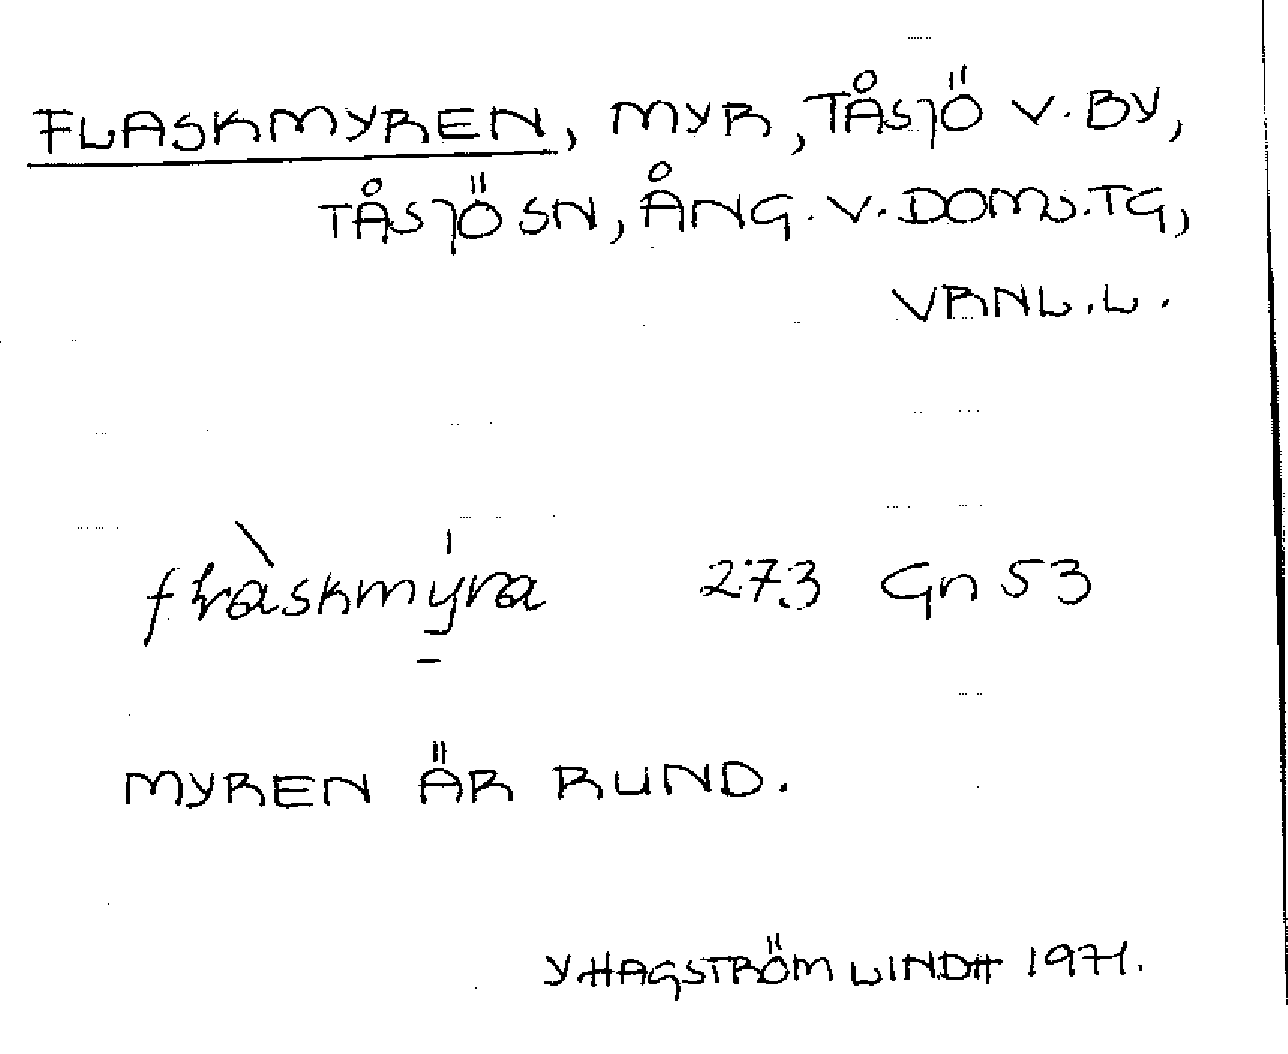 FLASKMYREN, MYR, TÅSJÖ V. BY,
TÅSJÖ SN, ÅNG. V. DOMS. TG,
VRNL. L.
273 Gn 53
MYREN ÄR RUND.
Y HAGSTRÖM LINDH 1971.